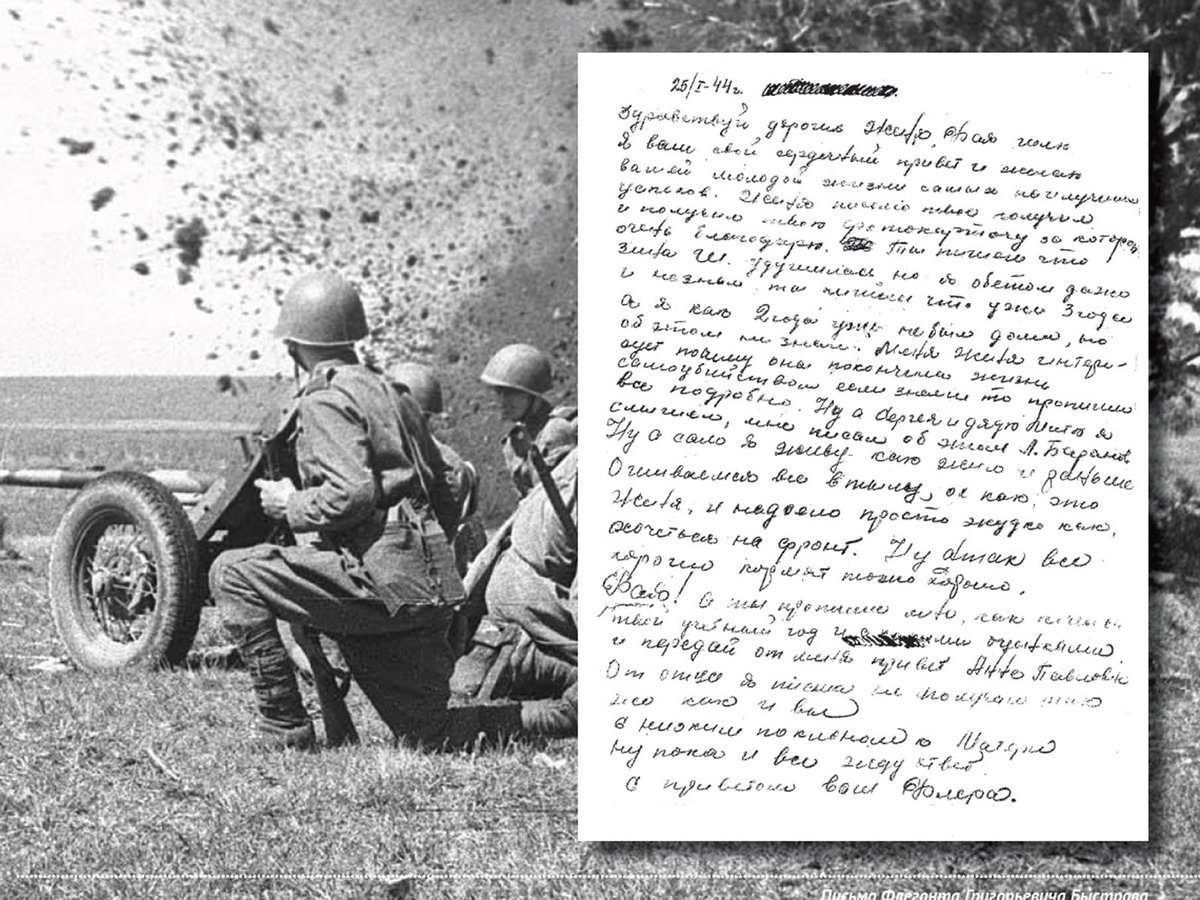 25/I-44г.
Здравствуй дорогие Женя, Фая шлю
я вам свой сердечный привет и желаю
вашей молодой жизни самых наилучших
успехов. Женя письмо твою получил
и получил твою фотокарточку за которую
очень благодарю. Ты пишеш что
Зина Ш. удушилась но я обетом даже
и незнал ты пишиш что уже 3 года
а я как 2 года уже небыл дома, но
об этом не знал. Меня Женя интере-
сует почему она покончила жизнь
самоубийством если знаеш то пропиши
все подробно. Ну а Сергея и дядю Митю я
слышал, мне писал об этом Л. Баранов
Ну а сам я живу как жил и раньше
Ошиваемся все в тылу, ох как, это
Женя, и надоело просто жудко как,
хочеться на фронт. Ну а так все
хорошо кормят тоже хорошо.
Фая! А ты пропиши мне, как
твой учебный год и оценками.
и передай от меня привет Анне Павловне
От отца я письма не получаю так
же как и вы
с низким поклоном к Матери
ну пока и все жду ответ
с приветом ваш Флера.
Письмо Флегонта Григорьевича Быстрова